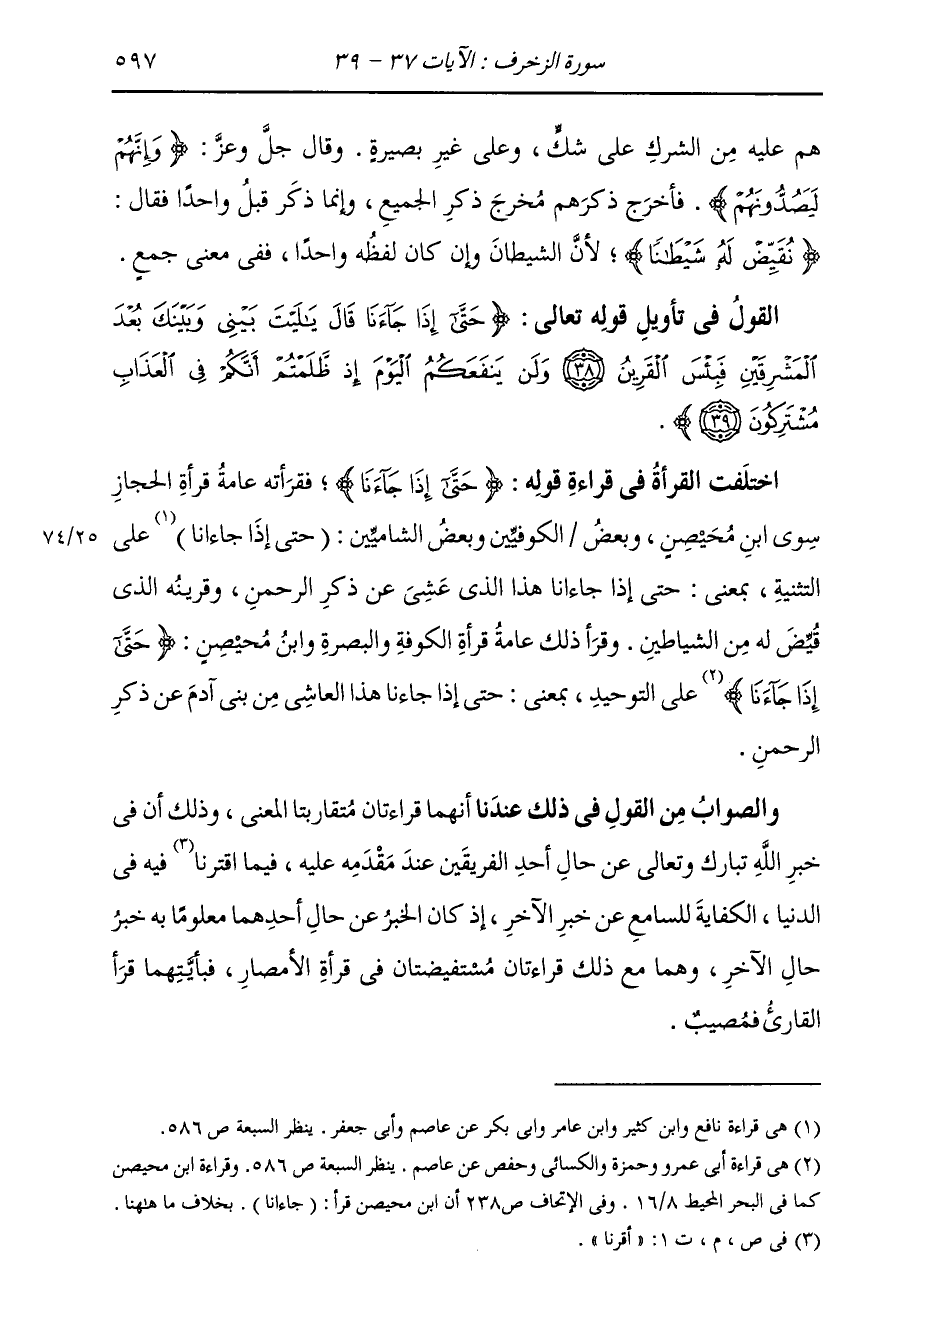 سورة الزخرف : الآيات ٣٧ - ٣٩ ٥٩٧
هم عليه مِن الشركِ على شكٍّ ، وعلى غيرِ بصيرةٍ . وقال جلَّ وعزَّ : ﴿ وَإِنَّهُمْ
لَيَصُدُّونَهُمْ ﴾ . فأخرَج ذكرَهم مُخرجَ ذكرِ الجميعِ ، وإنما ذكَر قبلُ واحدًا فقال :
﴿ نُقَيِّضْ لَهُ شَيْطَٰنًا ﴾ ؛ لأنَّ الشيطانَ وإن كان لفظُه واحدًا ، ففى معنى جمعٍ .
القولُ فى تأويلِ قولِه تعالى : ﴿ حَتَّىٰٓ إِذَا جَآءَنَا قَالَ يَٰلَيْتَ بَيْنِى وَبَيْنَكَ بُعْدَ
ٱلْمَشْرِقَيْنِ فَبِئْسَ ٱلْقَرِينُ ﴿٣٨﴾ وَلَن يَنفَعَكُمُ ٱلْيَوْمَ إِذ ظَّلَمْتُمْ أَنَّكُمْ فِى ٱلْعَذَابِ
مُشْتَرِكُونَ ﴿٣٩﴾ ﴾ .
اختلَفت القرأةُ فى قراءةِ قولِه : ﴿ حَتَّىٰٓ إِذَا جَآءَنَا ﴾ ؛ فقرَأته عامةُ قرأةِ الحجازِ
سِوى ابنِ مُحَيْصِنٍ ، وبعضُ / الكوفيِّين وبعضُ الشاميِّين : ( حتى إذَا جاءانا )(١) على ٧٤/٢٥
التثنيةِ ، بمعنى : حتى إذا جاءانا هذا الذى عَشِىَ عن ذكرِ الرحمنِ ، وقرينُه الذى
قُيِّضَ له مِن الشياطينِ . وقرَأ ذلك عامةُ قرأةِ الكوفةِ والبصرةِ وابنُ مُحيْصِنٍ : ﴿ حَتَّىٰٓ
إِذَا جَآءَنَا ﴾(٢) على التوحيدِ ، بمعنى : حتى إذا جاءنا هذا العاشِى مِن بنى آدمَ عن ذكرِ
الرحمنِ .
والصوابُ مِن القولِ فى ذلك عندَنا أنهما قراءتان مُتقاربتا المعنى ، وذلك أن فى
خبرِ اللَّهِ تبارك وتعالى عن حالِ أحدِ الفريقَين عندَ مَقْدَمِه عليه ، فيما اقترنا(٣) فيه فى
الدنيا ، الكفايةَ للسامعِ عن خبرِ الآخرِ ، إذ كان الخبرُ عن حالِ أحدِهما معلومًا به خبرُ
حالِ الآخرِ ، وهما مع ذلك قراءتان مُسْتفيضتان فى قرأةِ الأمصارِ ، فبأيَّتِهما قرَأ
القارئُ فمُصيبٌ .
(١) هى قراءة نافع وابن كثير وابن عامر وابى بكر عن عاصم وأبى جعفر . ينظر السبعة ص ٥٨٦.
(٢) هى قراءة أبى عمرو وحمزة والكسائى وحفص عن عاصم . ينظر السبعة ص ٥٨٦. وقراءة ابن محيصن
كما فى البحر المحيط ١٦/٨ . وفى الإتحاف ص٢٣٨ أن ابن محيصن قرأ : ( جاءانا ) . بخلاف ما هلهنا .
(٣) فى ص ، م ، ت ١: « أقرنا » .